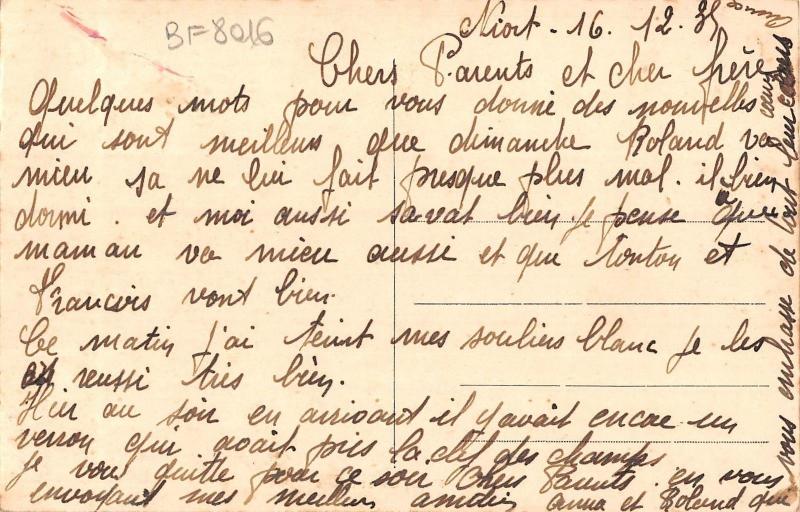 BF=8016
Niort - 16. 12. 35
Chers Parents et cher frère
Quelques mots pour vous donné des nouvelles
qui sont meilleurs que dimanche Roland va
mieu sa ne lui fait presque plus mal. il a bien
dormi. et moi aussi savat bien. Je pense que
maman va mieu aussi et que tonton et
Francois vont bien.
Ce matin j'ai teint mes souliers blanc je les
ai reussi très bien.
Hier au soir en arrivant il y avait encore un
verrou qui avait pris la clef des champs
je vous quitte pour ce soir chers Parents. en vous
envoyant mes meilleurs amitiés anna et Roland qui
vous embrasse de tout leur cœurs